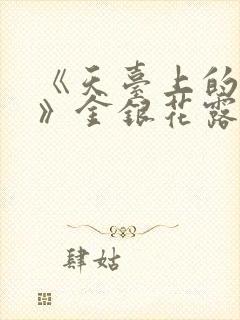 《天臺上的
》金銀花露
肆姑